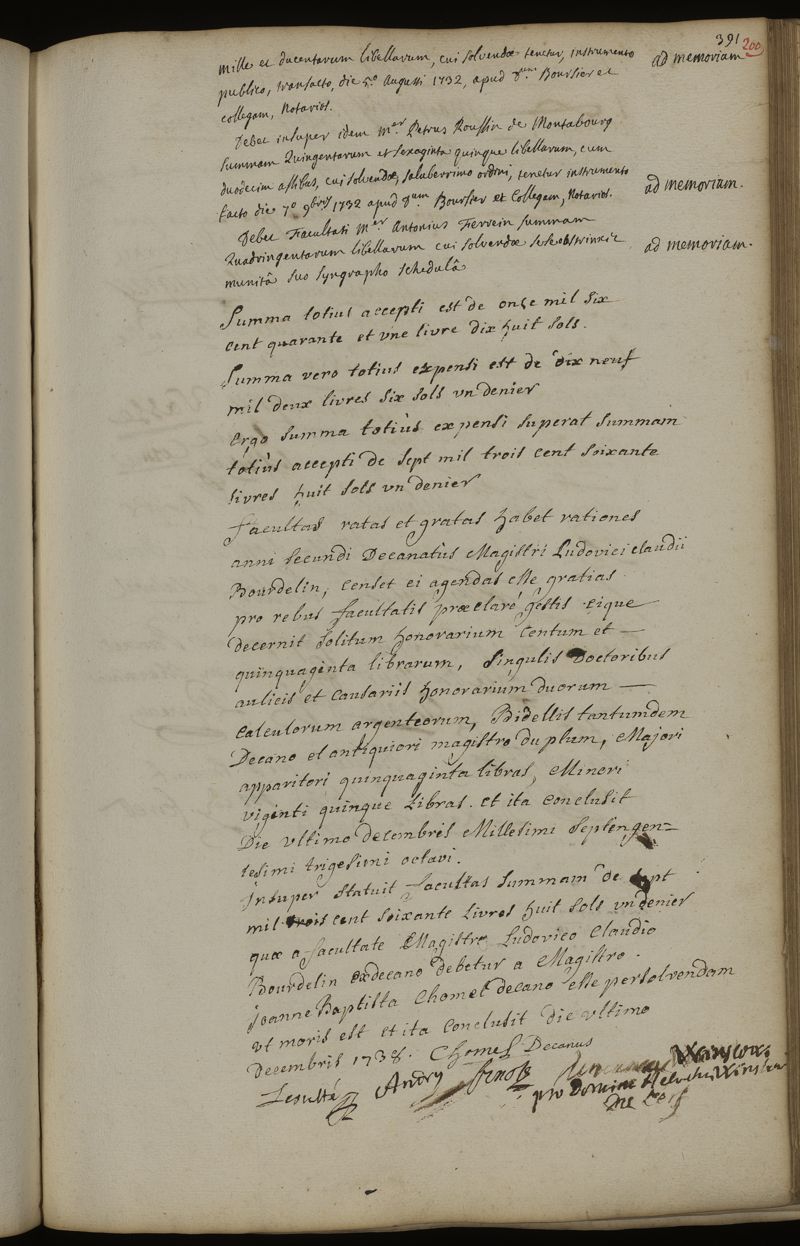 391 200
mille et ducentarum libellarum, cui solvendæ tenetur, instrumento ad memoriam
publico, transacto, die 5.º Augusti 1732, apud Dum. Boursier et
collegam, Notarios.
Debet insuper idem Mer. Petrus Roussin de Montabourg
summam Quingentarum et sexaginta quinque libellarum, cum
duodecim assibus, cui solvendæ, saluberrimo ordini, tenetur instrumento ad memoriam.
facto die 7º 9bris 1732 apud Dum Boursier et Collegam, Notarios.
Debet Facultati Mer Antonius Ferrein summam
Quadringentarum libellarum cui solvendæ sese obstrinxit ad memoriam.
munitâ suo syngrapho schedulâ
Summa totius accepti est de onze mil six
cent quarante et une livre dix huit sols.
Summa vero totius expensi est de dix neuf
mil deux livres six sols un denier
Ergo summa totius expensi superat summam
totius accepti de sept mil trois cent soixante
livres huit sols un denier
Facultas ratas et gratas habet rationes
anni secundi Decanatûs Magistri Ludovici claudii
Bourdelin, censet ei agendas esse gratias
pro rebus facultatis præclarè gestis eique
decernit solitum honorarium Centum et —
quinquaginta librarum, singulis Doctoribus
aulicis et Causariis honorarium duorum —
calculorum argenteorum, Bidellis tantumdem
Decano et antiquiori magistro duplum, Majori
apparitori quinquaginta libras, Minori
viginti quinque Libras. et ita conclusit
Die ultimo decembris Millesimi septengen=
tesimi trigesimi octavi.
insuper statuit facultas summam de sept
mil trois cent soixante Livres huit sols un denier
quæ a facultate Magistro Ludovico Claudio
Bourdelin exdecano debetur a Magistro.
Joanne Baptista Chomel decano esse persolvendam
ut moris est et ita conclusit die ultimo
decembris 1738. Chomel Decanus
Andry Winslow
pro Domino Helvetius Winslow